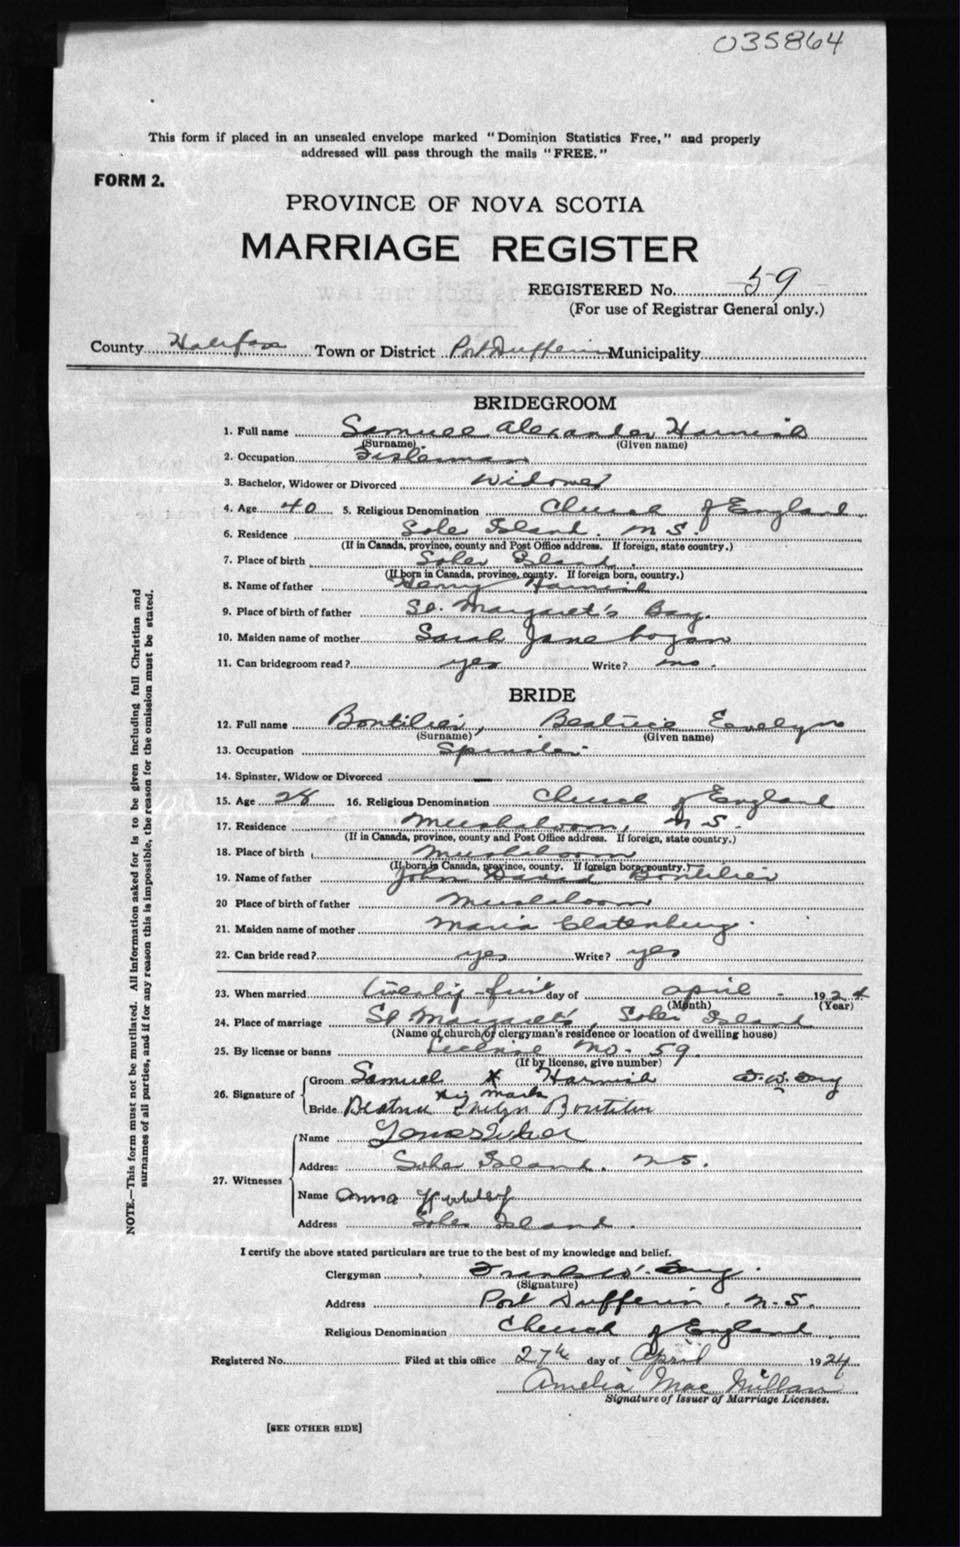 035864
This form if placed in an unsealed envelope marked "Dominion Statistics Free," and properly
addressed will pass through the mails "FREE."
FORM 2.
PROVINCE OF NOVA SCOTIA
MARRIAGE REGISTER
REGISTERED No. 59
(For use of Registrar General only.)
County Halifax Town or District Port Dufferin Municipality
BRIDEGROOM
1. Full name Samuel Alexander Harnish
(Surname) (Given name)
2. Occupation Fisherman
3. Bachelor, Widower or Divorced Widower
4. Age 40 5. Religious Denomination Church of England
6. Residence Sober Island. N.S.
(If in Canada, province, county and Post Office address. If foreign, state country.)
7. Place of birth Sober Island.
(If born in Canada, province, county. If foreign born, country.)
8. Name of father Henry Harnish
9. Place of birth of father St. Margaret's Bay.
10. Maiden name of mother Sarah Jane Logan
11. Can bridegroom read? yes Write? no.
BRIDE
12. Full name Boutilier, Beatrice Eevelyn
(Surname) (Given name)
13. Occupation Spinster
14. Spinster, Widow or Divorced —
15. Age 28 16. Religious Denomination Church of England
17. Residence Mushaboom, N.S.
(If in Canada, province, county and Post Office address. If foreign, state country.)
18. Place of birth Mushaboom
(If born in Canada, province, county. If foreign born, country.)
19. Name of father John David Boutilier
20 Place of birth of father Mushaboom
21. Maiden name of mother Maria Clatenburg.
22. Can bride read? yes Write? yes
23. When married twenty-first day of April - 1924
(Month) (Year)
24. Place of marriage St Margaret's, Sober Island
(Name of church or clergyman's residence or location of dwelling house)
25. By license or banns License No. 59.
(If by license, give number)
26. Signature of
Groom Samuel X Harnish
his mark
Bride Beatrice Evelyn Boutilier
27. Witnesses
Name
Address Sober Island. N.S.
Name Anna
Address Sober Island.
NOTE.—This form must not be mutilated. All information asked for is to be given including full Christian and
surnames of all parties, and if for any reason this is impossible, the reason for the omission must be stated.
I certify the above stated particulars are true to the best of my knowledge and belief.
Clergyman Frank W.
(Signature)
Address Port Dufferin. N.S.
Religious Denomination Church of England
Registered No. Filed at this office 27th day of April 1924
Amelia MacMillan
Signature of Issuer of Marriage Licenses.
[SEE OTHER SIDE]